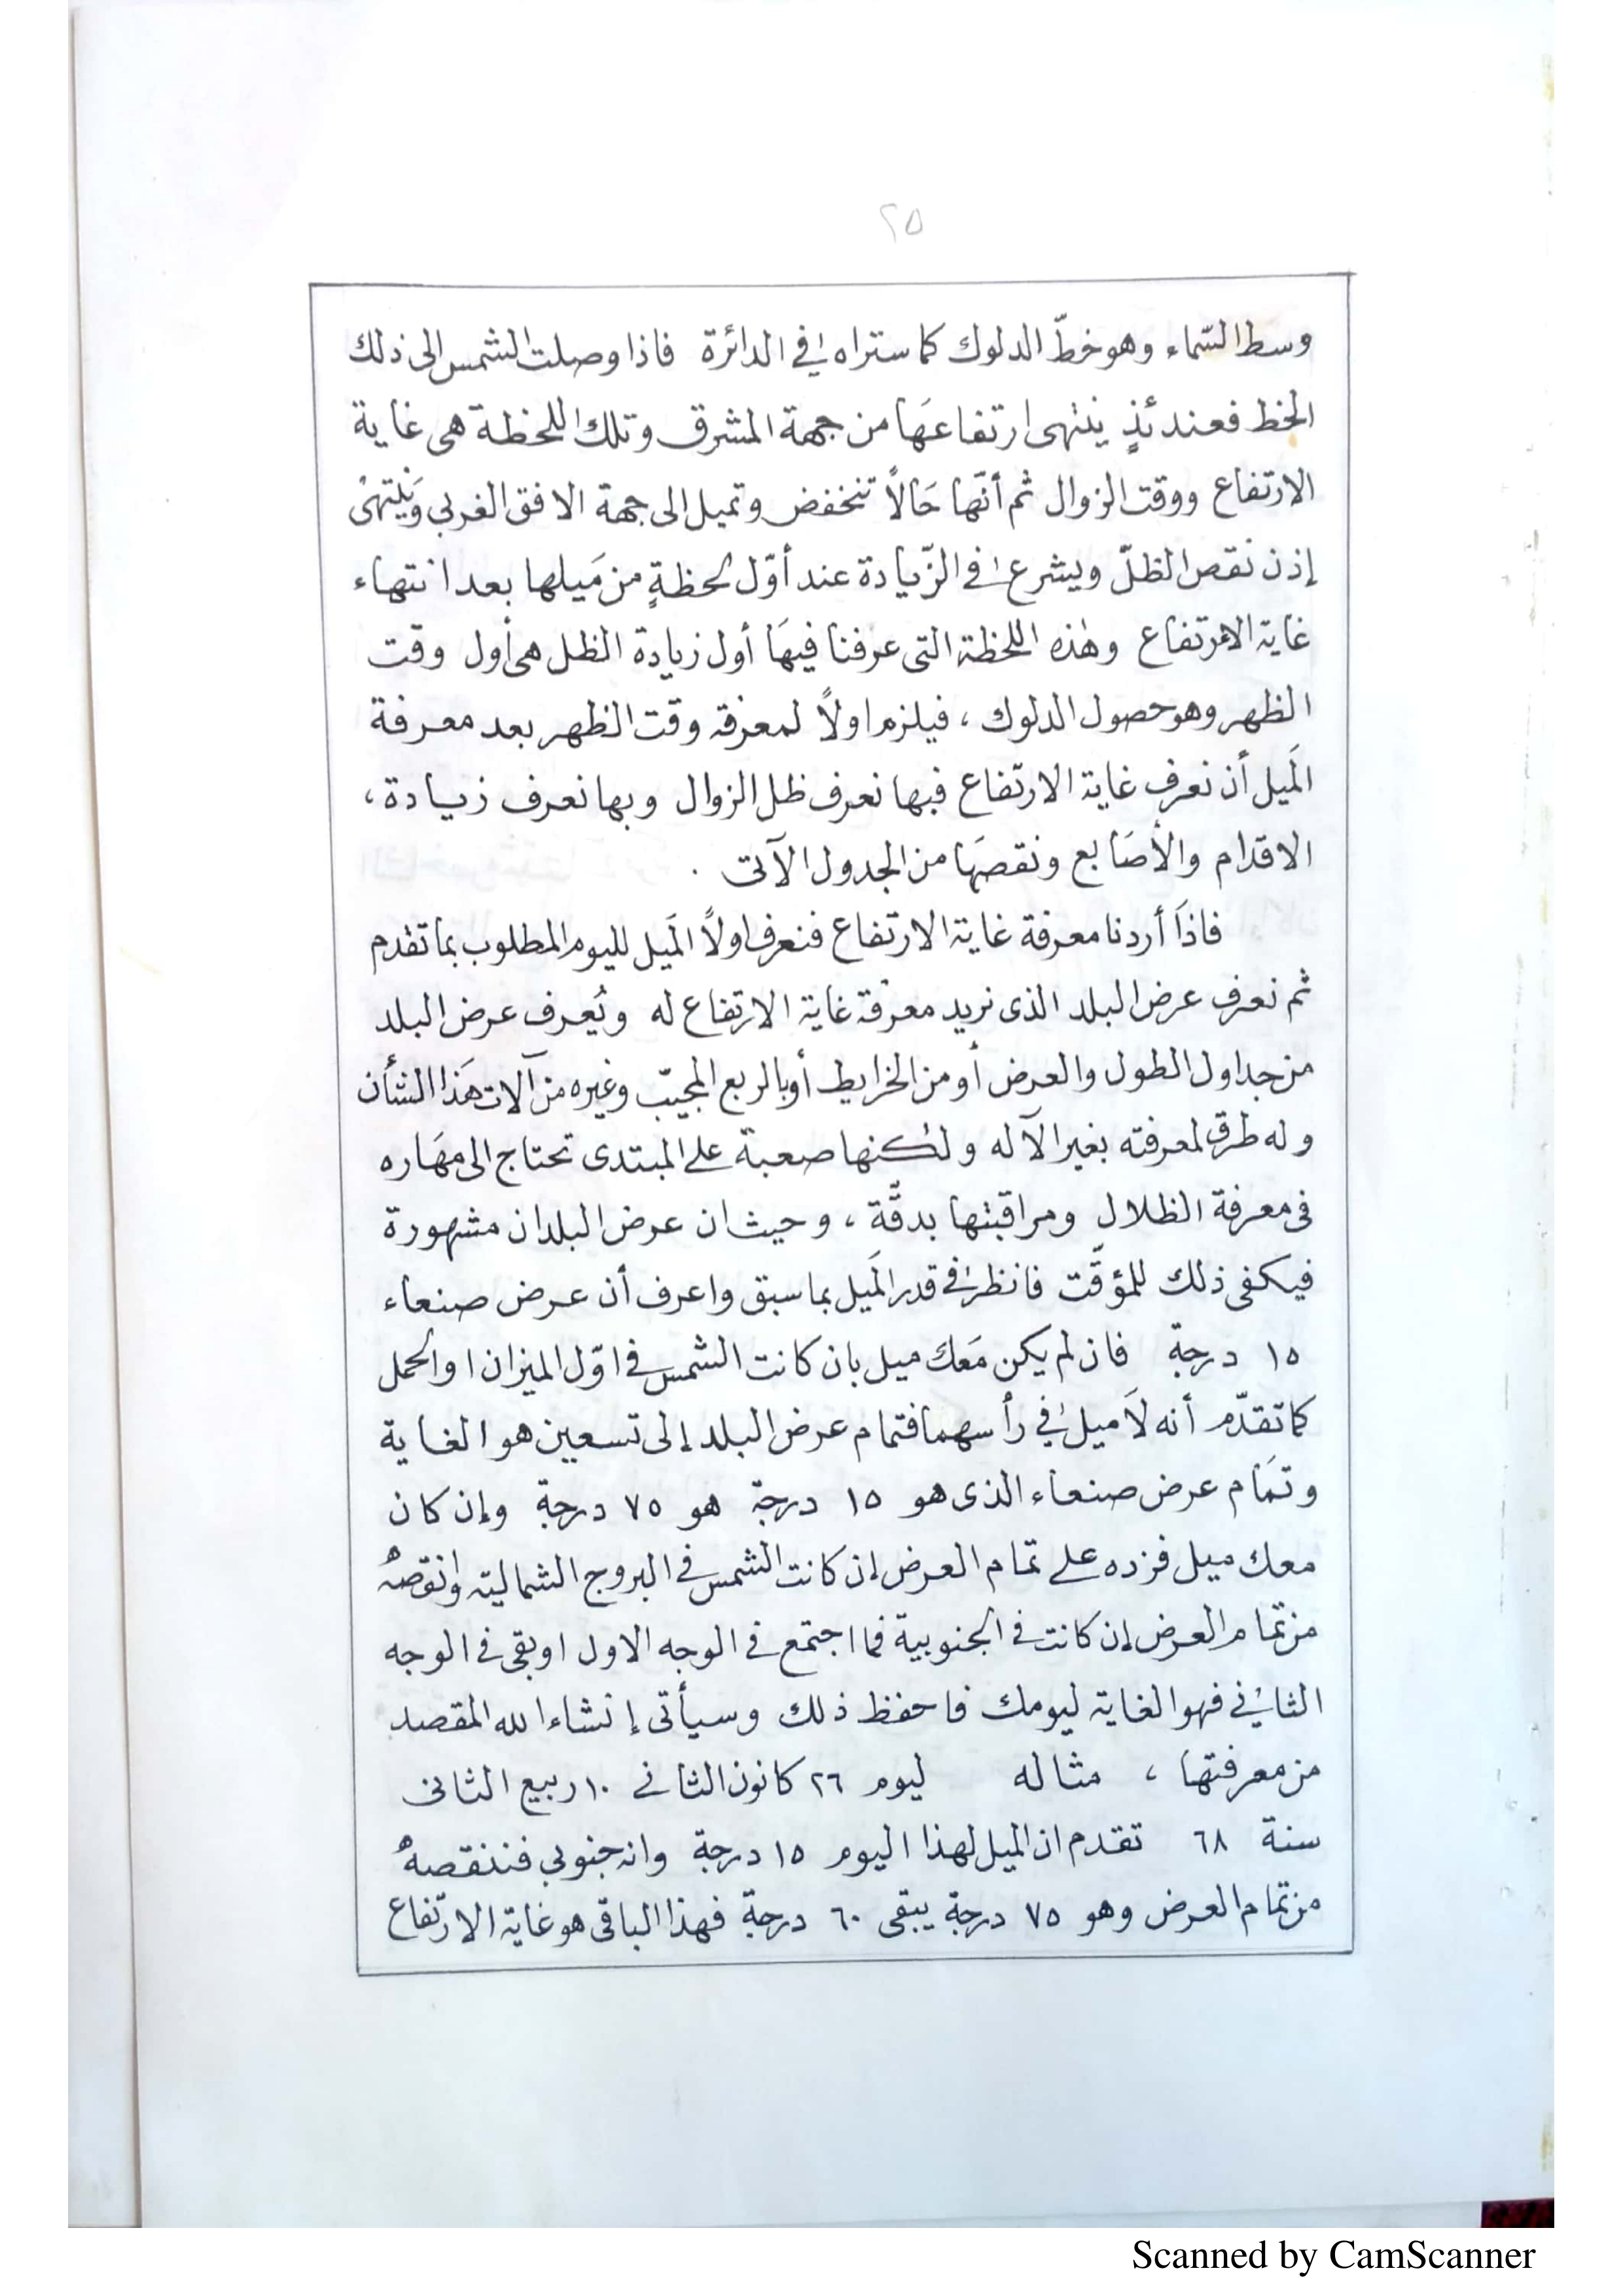 ٢٥
وسط السّماء وهو خطّ الدلوك كما ستراه في الدائرة فاذا وصلت الشمس الى ذلك
الخط فعندئذٍ ينتهى ارتفاعهَا من جهة المشرق وتلك اللحظة هى غاية
الارتفاع ووقت الزوال ثم أنّها حَالاً تنخفض وتميل الى جهة الافق الغربي وَيَنتهىْ
إذن نقص الظلّ ويشرع في الزّيادة عند أوّل لحظةٍ من مَيلها بعد انتهاء
غاية الارتفاع وهٰذه اللحظة التى عرفنا فيهَا أول زيادة الظل هى أول وقت
الظهر وهو حصول الدلوك ، فيلزم اولاً لمعرفة وقت الظهر بعد معرفة
المَيل أن نعرف غاية الارتفاع فبها نعرف ظل الزوال وبها نعرف زيادة ،
الاقدام والأصَابع ونقصهَا من الجدول الآتى .
فاذَا أردنا معرفة غاية الارتفاع فنعرف اولاً المَيل لليوم المطلوب بما تقدم
ثم نعرف عرض البلد الذى نريد معرفة غاية الارتفاع له ويُعرف عرض البلد
من جداول الطول والعرض أو من الخرايط أوبالربع المجيّب وغيره من آلات هَذا الشأن
وله طرق لمعرفته بغير الآله ولٰكنها صعبة على المبتدى تحتاج الى مهَاره
فى معرفة الظلال ومراقبتها بدقَّة ، وحيث ان عرض البلدان مشهورة
فيكفى ذلك للمؤقّت فانظر في قدر المَيل بما سبق واعرف أن عرض صنعاء
١٥ درجة فان لم يكن مَعك ميل بان كانت الشمس في اوّل الميزان او الحمل
كما تقدّم أنه لَا ميل في رأسهما فتمام عرض البلد إلى تسعين هو الغاية
وتمَام عرض صنعاء الذى هو ١٥ درجة هو ٧٥ درجة وإن كان
معك ميل فزده على تمام العرض إن كانت الشمس في البروج الشمالية وانقصهُ
من تمام العرض إن كانت في الجنوبية فما اجتمع في الوجه الاول او بقى في الوجه
الثاني فهو الغاية ليومك فاحفظ ذلك وسيأتى إنشاء الله المقصد
من معرفتها ، مثاله ليوم ٢٦ كانون الثاني ١٠ ربيع الثانى
سنة ٦٨ تقدم ان الميل لهذا اليوم ١٥ درجة وانه جنوبي فننقصهُ
من تمام العرض وهو ٧٥ درجة يبقى ٦٠ درجة فهذا الباقى هو غاية الارتفاع
Scanned by CamScanner